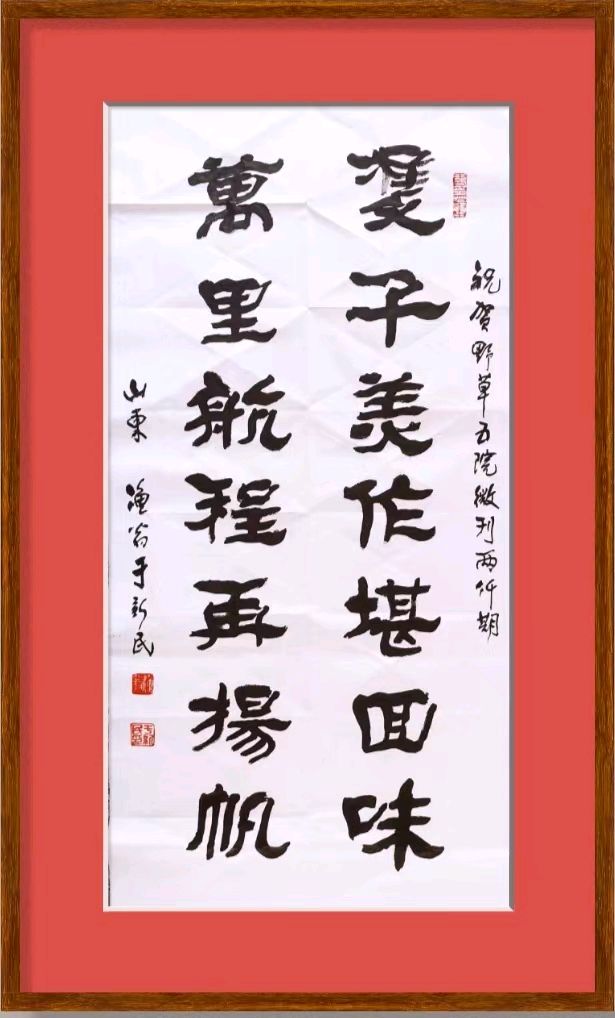 祝贺野草五院微刊两仟期
子美作堪回味
萬里航程再揚帆
山東 渔翁于新民